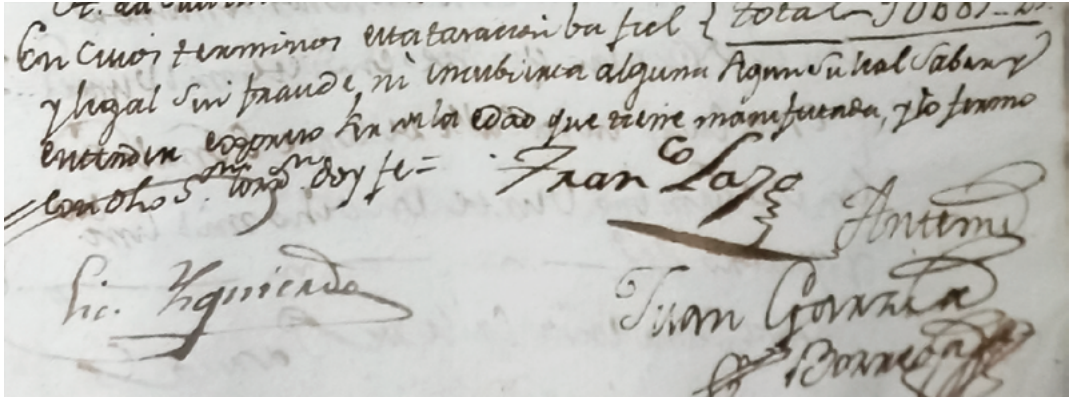 En cuios terminos esta tasacion ba fiel { total
y legal sin fraude, ni incubienca alguna segun su leal saver y
entender espreso ser de la edad que tiene manifestada, y lo firmo
con dho S.r Corr.or doy fe =
Fran.co Lazo
Antemi
Lic. Yzquierdo
Juan Garzia
Borreg